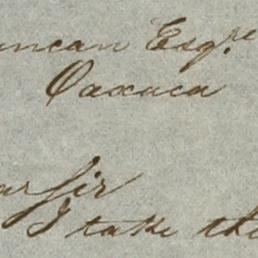 uncan Esqre
Oaxaca
ar Sir
I take the